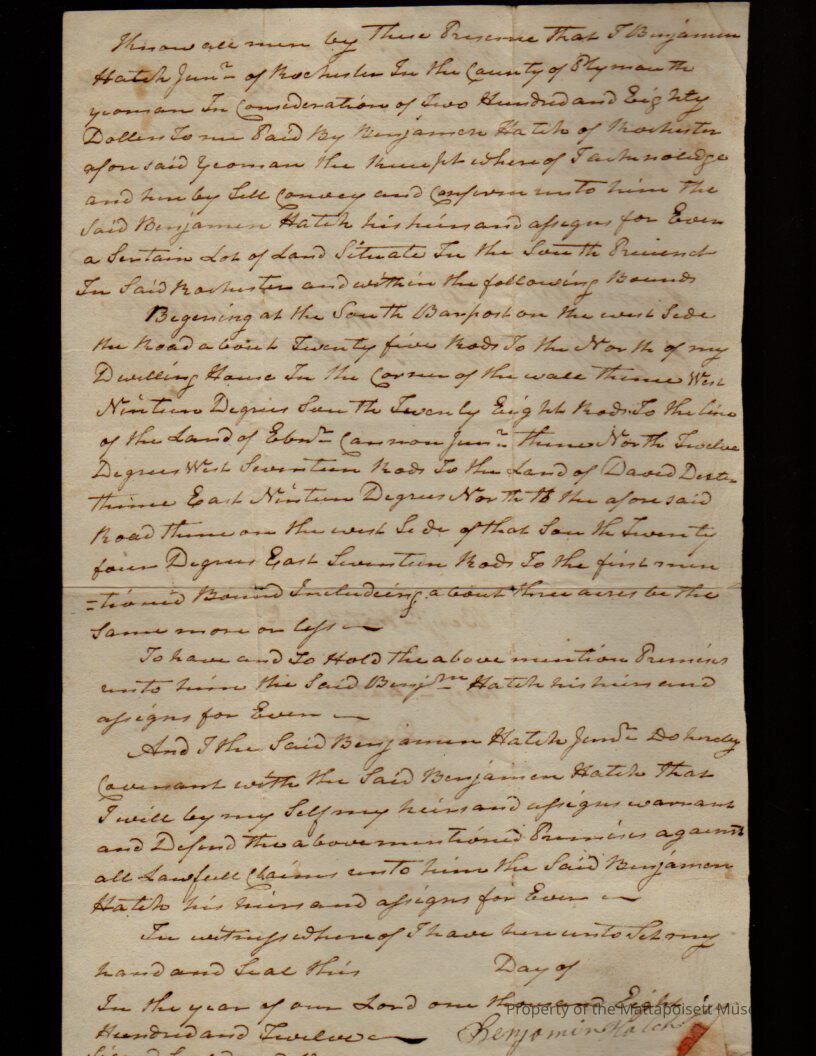 Know all men by These Presence That I Benjamen
Hatch Junr of Rochester In the County of Plymouth
yeoman In Consideration of Two Hundred and Eighty
Dollers To me Paid By Benjamen Hatch of Rochester
afore said yeoman the Receipt where of I acknoledge
and here by Sell Convey and Conferm unto him the
Said Benjamen Hatch his heirs and assigns for Ever
a Sertain Lot of Land Situate In the South
In Said Rochester and within the following Bounds
Begening at the South Barpost on the west Side
the Road about Twenty five Rods To the North of my
Dwelling House In the Corner of the wall thence West
Ninteen Degrees South Twenty Eight Rods To the line
of the Land of Ebnr Cannon Junr thence North Twelve
Degrees West Seventeen Rods To the Land of David
thence East Ninteen Degrees North to the afore said
Road thence on the west Side of that South Twenty
four Degrees East Seventeen Rods To the first men
=tioned Bound Includeing about three acres be the
Same more or less
To have and To Hold the above mention Premises
unto him the Said Benjmn Hatch his heirs and
assigns for Ever
And I the Said Benjamen Hatch Junr Do hereby
Covenant with the Said Benjamen Hatch That
I will by my Self my heirs and assigns warrant
and Defend the above mentioned Premises against
all Lawfull Claims unto him the Said Benjamen
Hatch his heirs and assigns for Ever
In witness where of I have here unto Set my
hand and Seal this Day of
In the year of our Lord one thousand Eight
Hundred and Twelve Benjamin Hatch Jr
Property of the Mattapoisett Museum